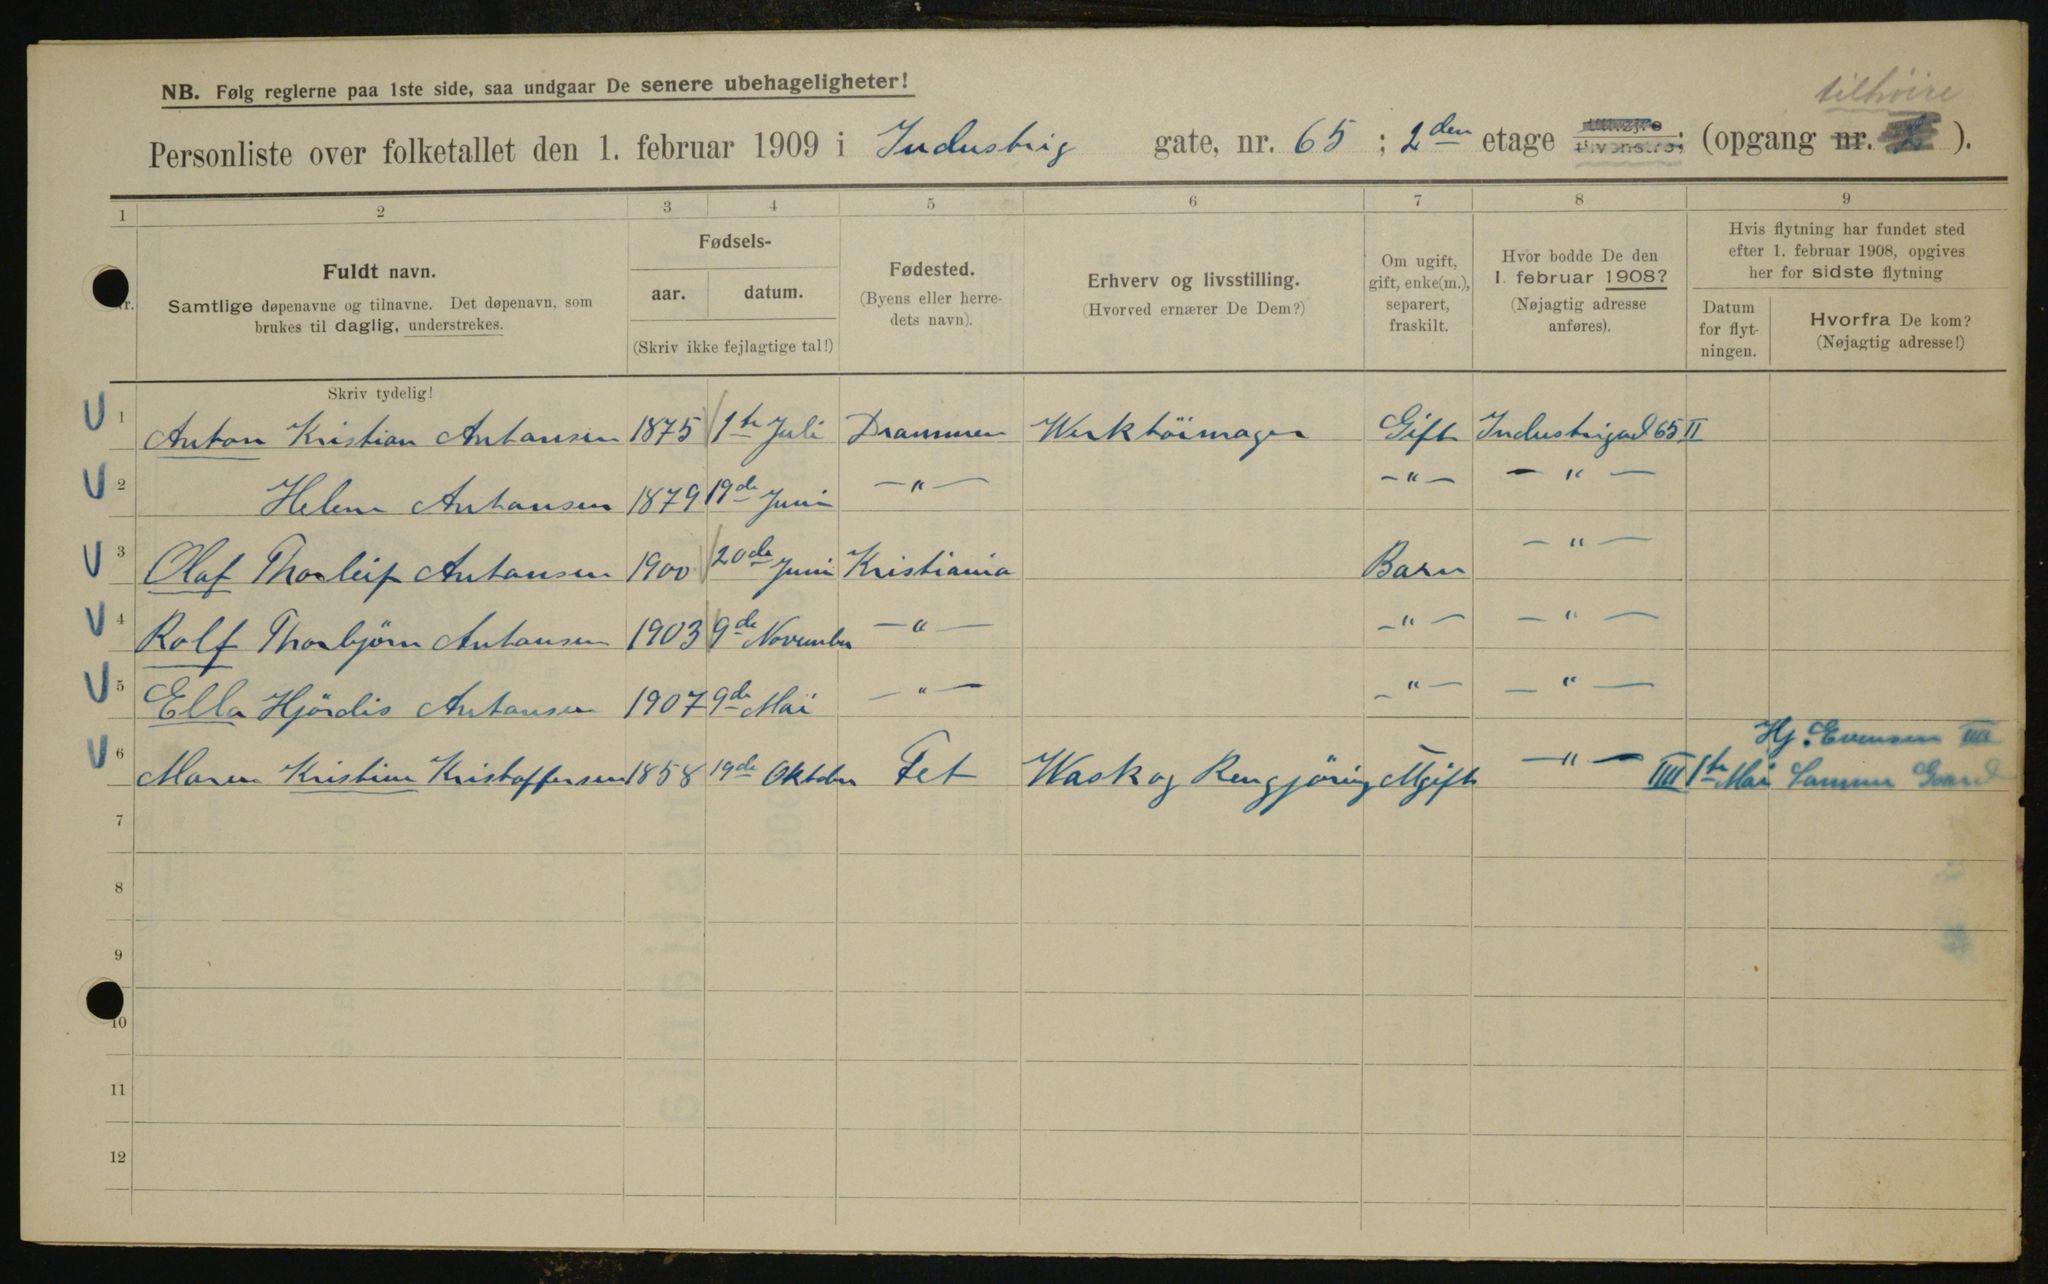 NB. Følg reglerne paa 1ste side, saa undgaar De senere ubehageligheter!
tilhøire
Personliste over folketallet den 1. februar 1909 i Industrig gate, nr. 65 ; 2den etage ; (opgang nr. ).
1 2 3 4 5 6 7 8 9
Fuldt navn.
Samtlige døpenavne og tilnavne. Det døpenavn, som
brukes til daglig, understrekes.
Fødsels-
aar. datum.
(Skriv ikke fejlagtige tal!)
Fødested.
(Byens eller herre-
dets navn).
Erhverv og livsstilling.
(Hvorved ernærer De Dem?)
Om ugift,
gift, enke(m.),
separert,
fraskilt.
Hvor bodde De den
1. februar 1908?
(Nøjagtig adresse
anføres).
Hvis flytning har fundet sted
efter 1. februar 1908, opgives
her for sidste flytning
Datum
for flyt-
ningen.
Hvorfra De kom?
(Nøjagtig adresse!)
Skriv tydelig!
1 Anton Kristian Antonsen 1875 1te Juli Drammen Werktöimager Gift Industrigad 65 II
2 Helene Antonsen 1879 19de Juni —"— —"— —"—
3 Olaf Thorleif Antonsen 1900 20de Juni Kristiania Barn —"—
4 Rolf Thorbjörn Antonsen 1903 9de November —"— —"— —"—
5 Ella Hjördis Antonsen 1907 9de Mai —"— —"— —"—
Hj. Evensen IIII
6 Maren Kristine Kristoffersen 1858 19de Oktober Fet Wask og Rengjöring Ugift —"— IIII 1te Mai Samme Gaard
7
8
9
10
11
12